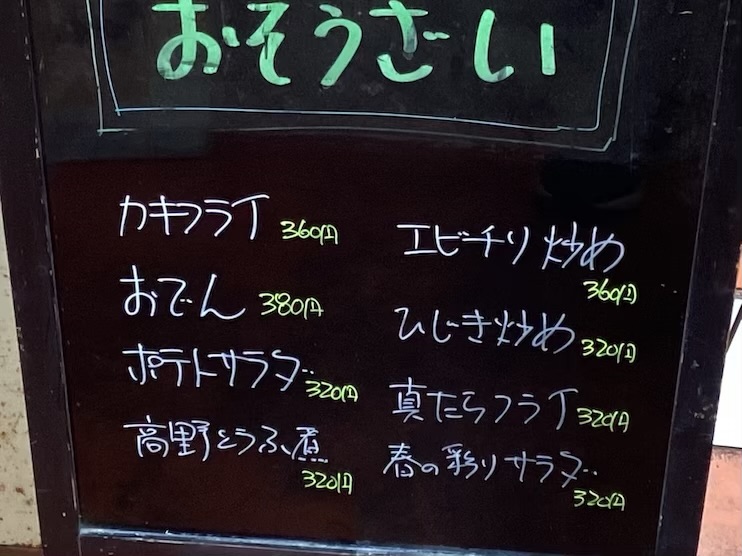 おそうざい
カキフライ 360円
おでん 380円
ポテトサラダ 320円
高野とうふ煮 320円
エビチリ炒め 360円
ひじき炒め 320円
真たらフライ 320円
春の彩りサラダ 320円